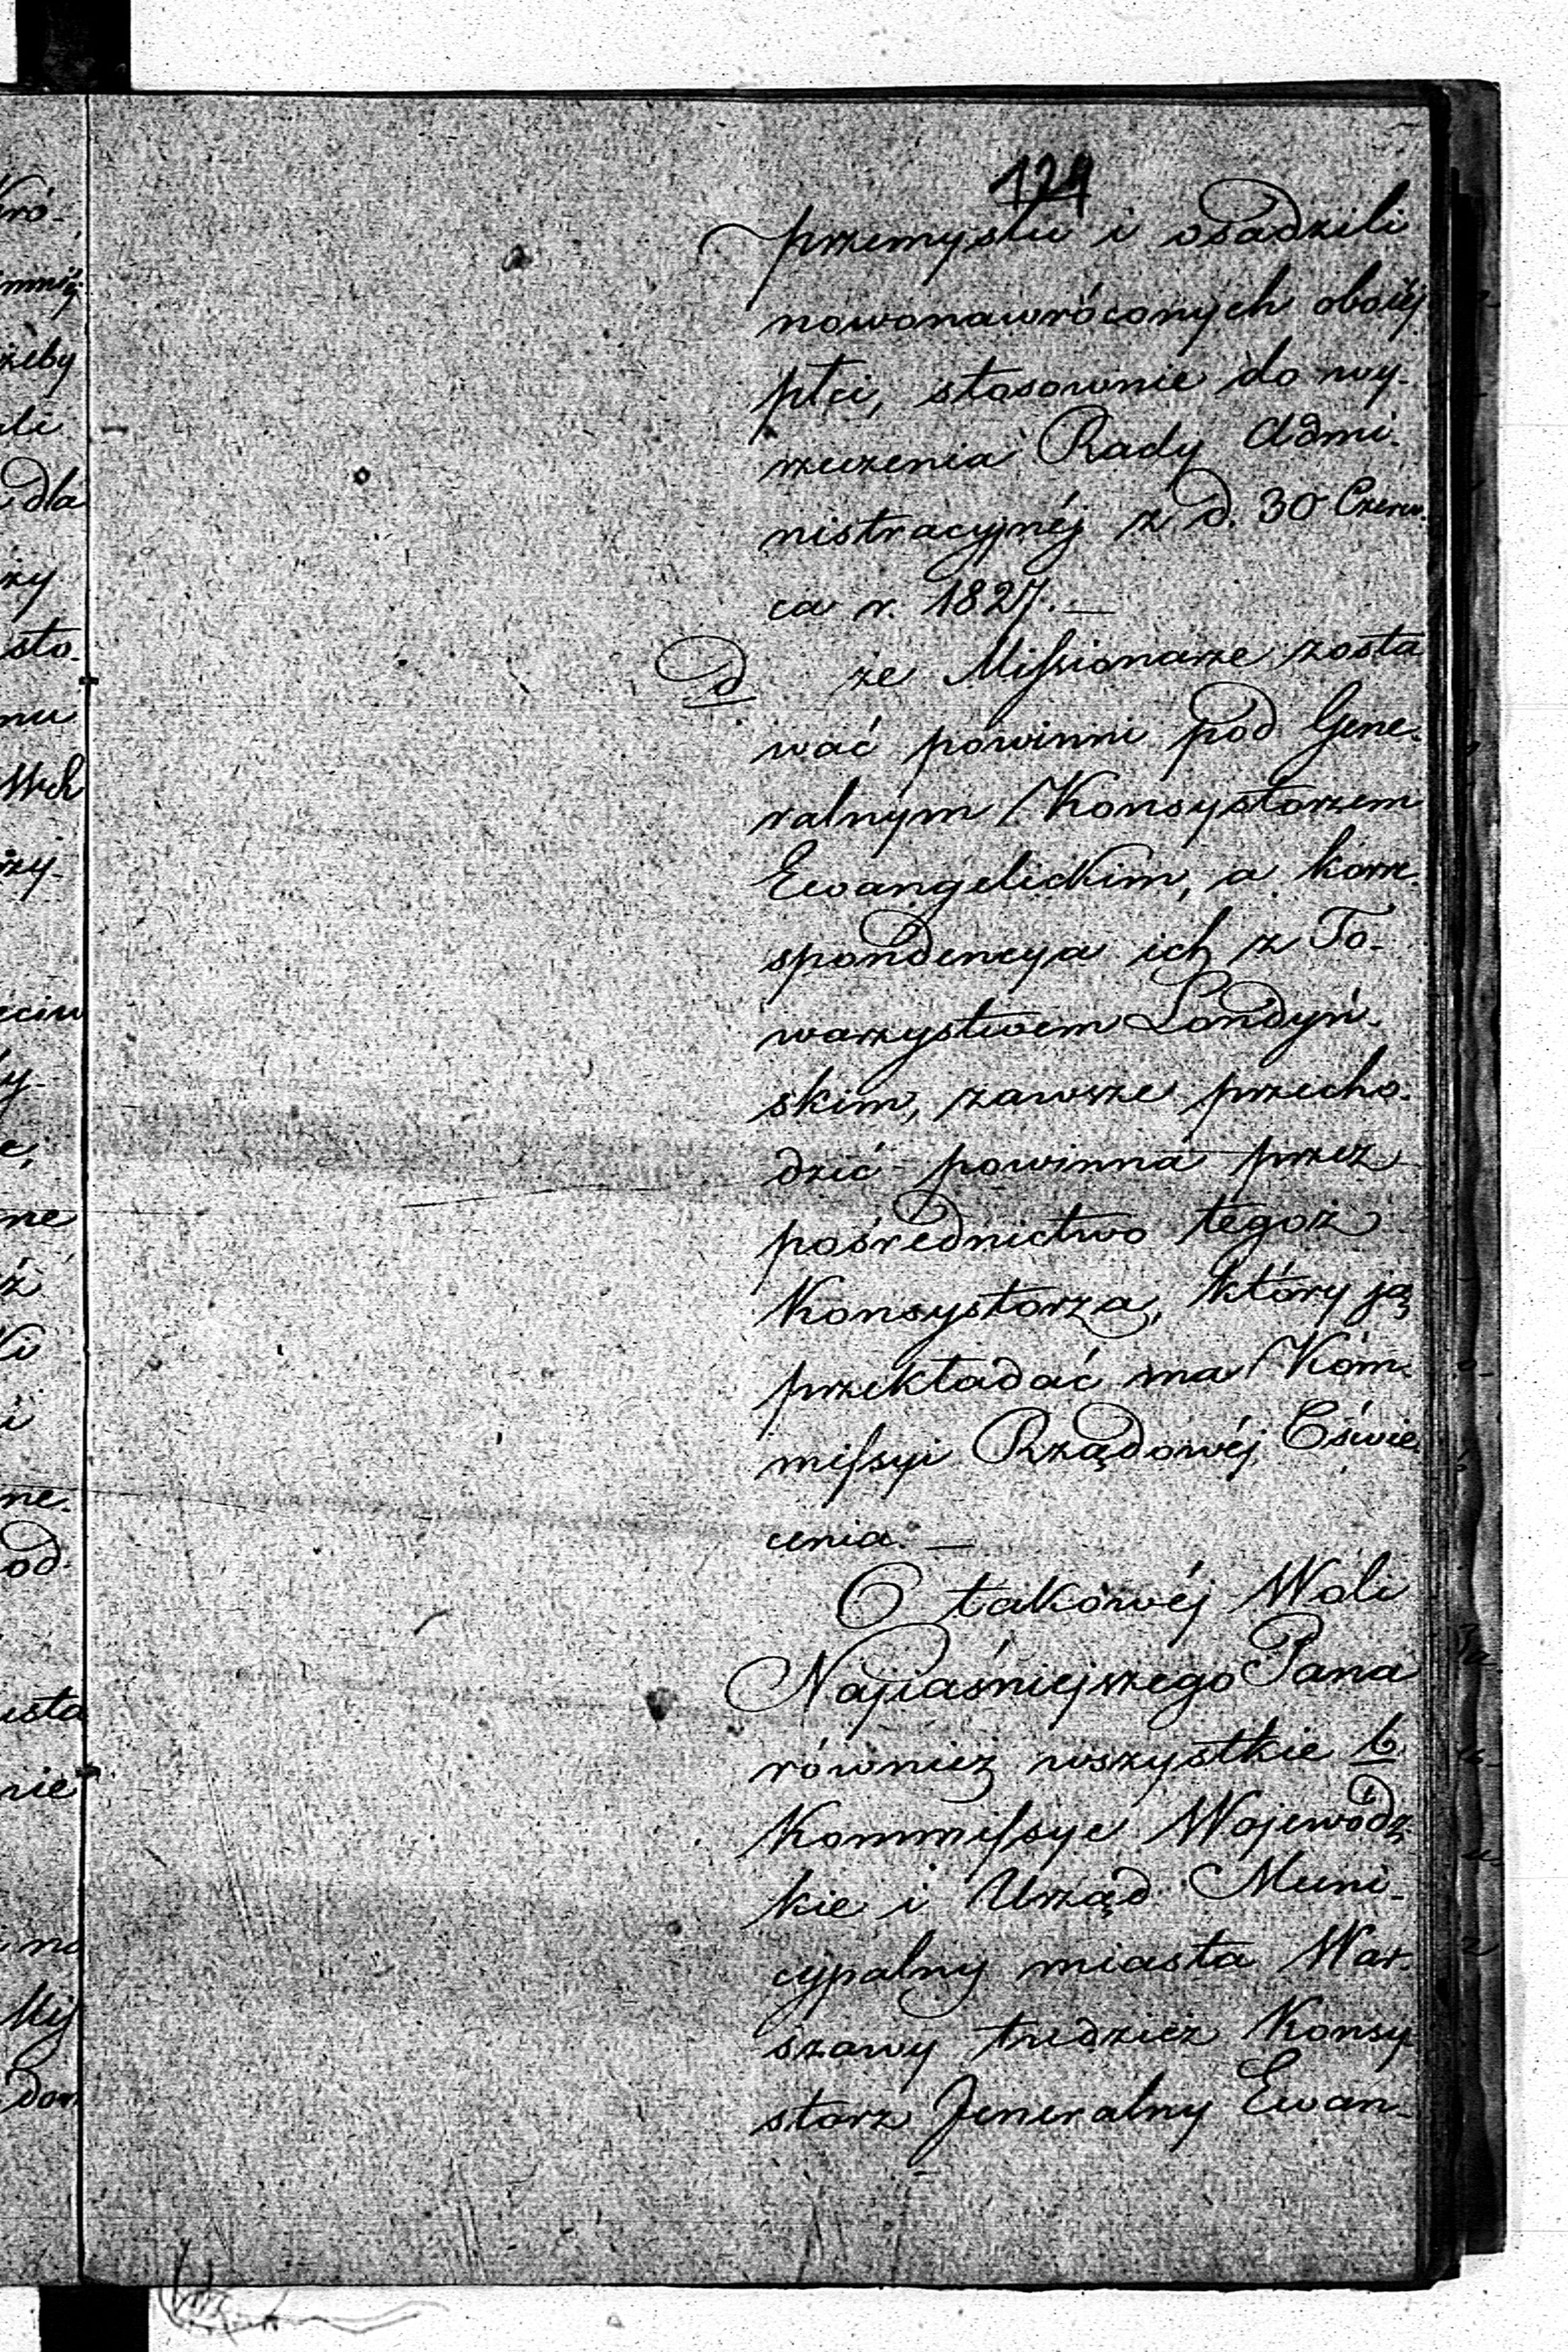 129
przemysłu i osadzili
nowonawróconych oboiéj
płci, stosownie do wy-
rzeczenia Rady Admi-
nistracyjnéj z d. 30 Czerw-
ca r. 1827. —
d że Missionarze zosta
wać powinni pod Gene-
ralnym Konsystorzem
Ewangelickim, a korre-
spondencya ich z To-
warzystwem Londyń-
skim, zawsze przecho-
dzić powinna przez
pośrednictwo tegoż
Konsystorza, który ją
przekładać ma Kom-
missyi Rządowéj Oświe-
cenia. —
O takowéj Woli
Najiaśniejszego Pana
również wszystkie
Kommissye Wojewódz
kie i Urząd Muni-
cypalny miasta War-
szawy tudzież Konsy
storz Jeneralny Ewan-